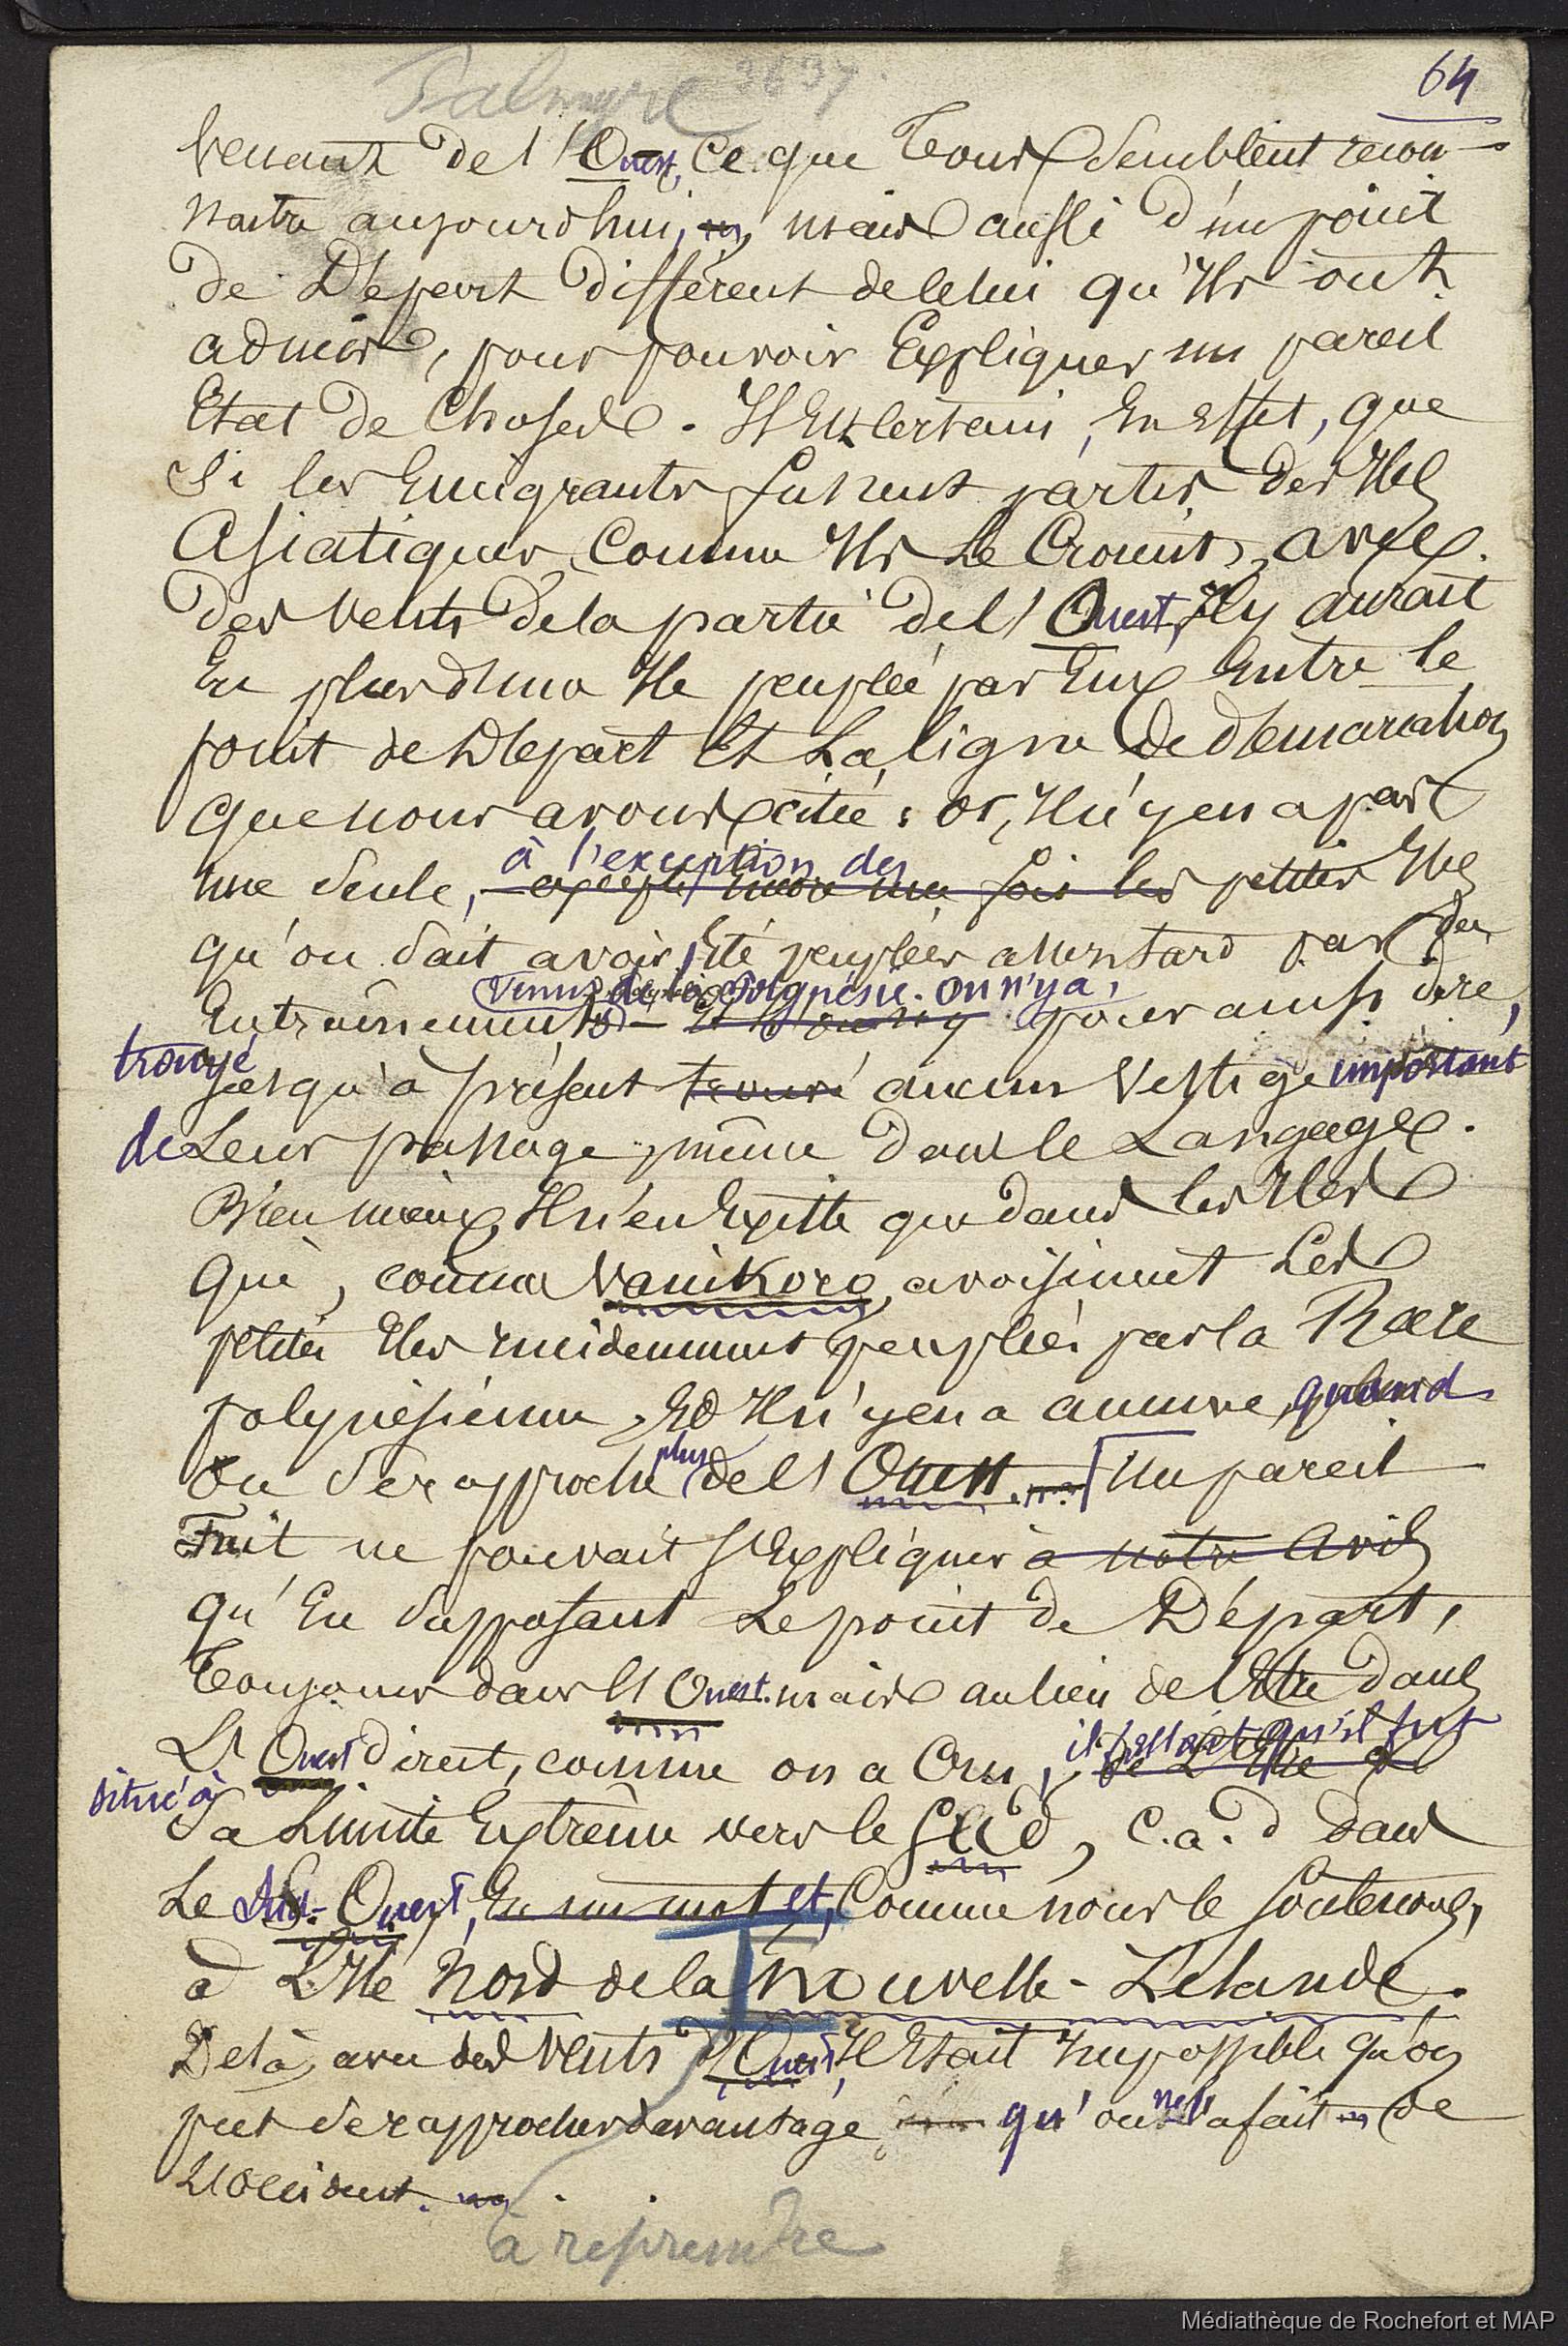 Palmyre 3637.
64
venant de l'Ouest, ce que tous semblent recon-
naitre aujourd'hui, mais aussi d'un point
de Départ différent de celui qu'ils ont
admis, pour pouvoir Expliquer un pareil
Etat de Choses. Il Est certain, En Effet, que
Si les Emigrants fussent partis des Iles
Asiatiques, Comme Ils Le Croient, avec
des vents de la partie de l'Ouest, Il y aurait
Eu plus d'une Ile peuplée par Eux Entre le
point de Départ Et La ligne de démarcation
que nous avons citée : or, Il n'y en a pas
à l'exception des
une Seule, excepté encore une fois les petites Iles
qu'on Sait avoir Eté peuplées plus tard par des
venus de la Polynésie. On n'y a,
Entrainements pour ainsi dire,
trouvé
jusqu'à présent trouvé aucun Vestige important
de Leur passage, même dans le Langage.
Bien mieux, Il n'en Existe que dans les Iles
Qui, comme Vanikoro, avoisinent Les
petites Iles evidemment peuplées par la Race
polynésienne, Et Il n'y en a aucune, quand
plus
On Se rapproche de l'Ouest. Un pareil
Fait ne pouvait S'Expliquer à notre avis
qu'En Supposant Le point de Départ,
Toujours dans l'Ouest. mais au lieu de l'Etre dans
il fallait qu'il fut
L'Ouest direct, comme on a Cru, de L'Etre à
situé à
Sa Limite Extrême vers le Sud, c.a.d dans
Le Sud-Ouest, En un mot et, Comme nous le Soutenons,
à L'Ile Nord de la Nouvelle-Zelande.
De là, avec des vents d'Ouest, Il Etait Impossible qu'on
put Se rapprocher davantage qu'on ne l'a fait de
L'Occident.
à reprendre
Médiathèque de Rochefort et MAP